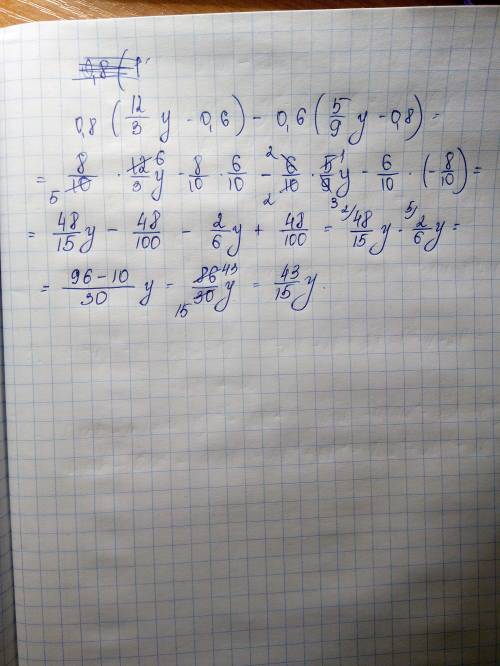 0,8 (
0,8 (12/3 y - 0,6) - 0,6 (5/9 y - 0,8) =
= 8/10 5 · 12/3 6 y - 8/10 · 6/10 - 6/10 2 2 · 5/9 1 3 y - 6/10 · (- 8/10) =
= 48/15 y - 48/100 - 2/6 y + 48/100 = 2/ 48/15 y - 5/ 2/6 y =
= 96-10/30 y = 86/30 43 15 y = 43/15 y.